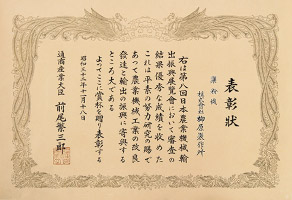 表彰状
藻粉機
株式会社柳原製作所
右は第八回日本農業機械輸
出振興展覧会において審査の
結果優秀な成績を收めた
これは平素の努力研究の賜で
あつて農業機械工業の改良
発達と輸出の振興に寄與する
ところ大である
よつてここに賞杯を贈り表彰する
昭和三十三年十一月十八日
通商産業大臣 前尾繁三郎